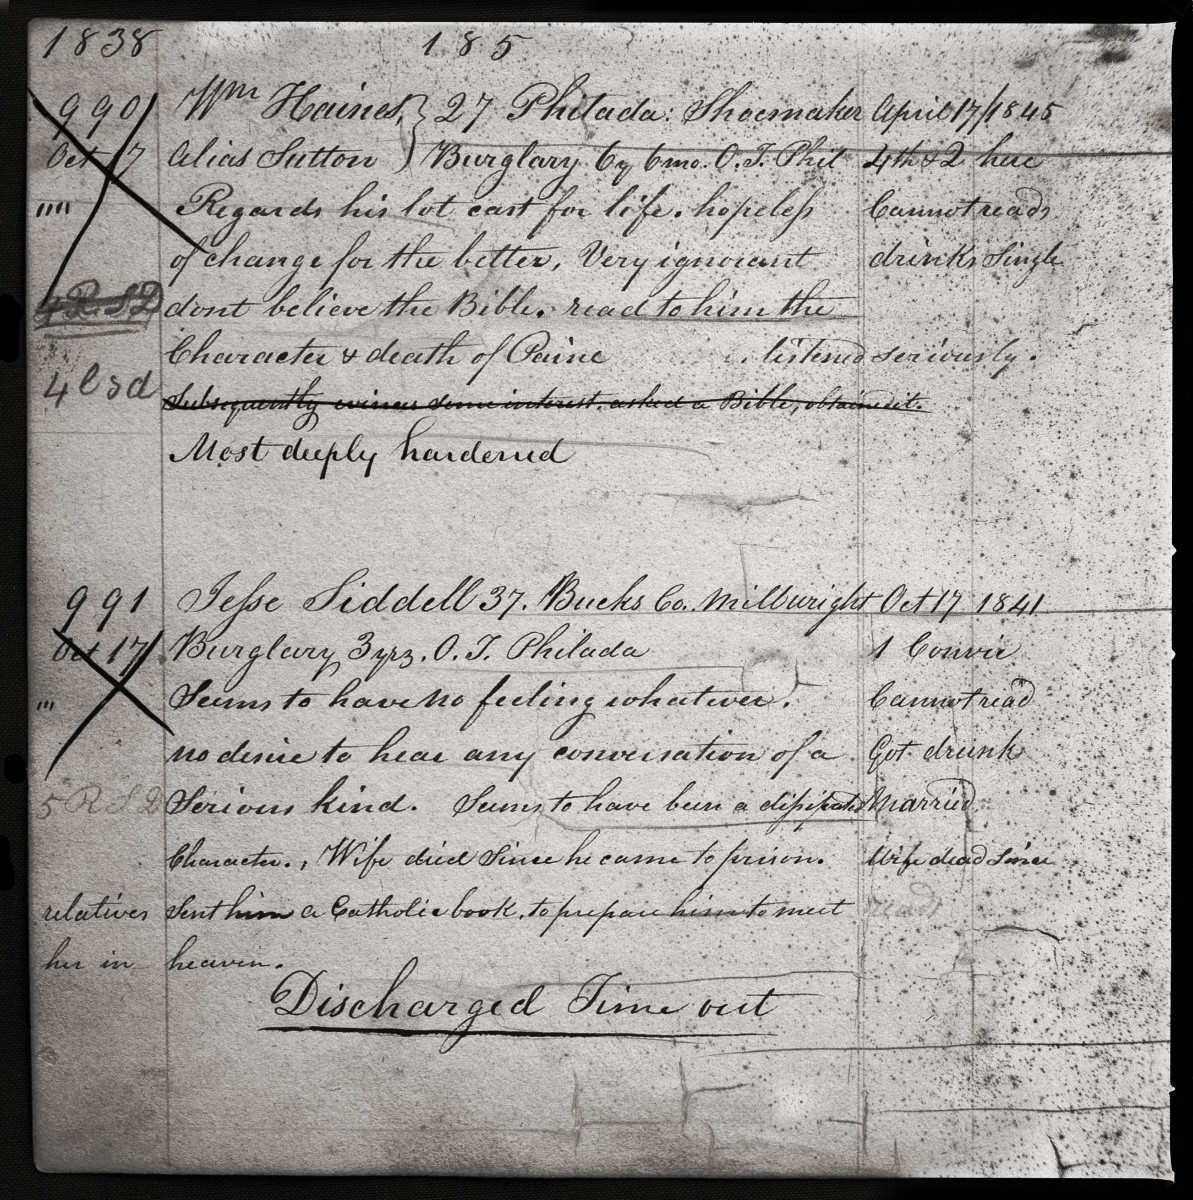 1838 185
990 Wm Haines, } 27 Philada: Shoemaker April 17/1845
Oct 17 Alias Sutton ) Burglary 6y 6mo. O.T. Phil 4th & 2 here
"" Regards his lot cast for life. hopeless Cannot reads
of change for the better, Very ignorant drinks Single
4 R. S D dont believe the Bible. read to him the
Character & death of Paine listened seriously.
4 l s d Subsequently evinces some interest, asked a Bible, obtaines it.
Most deeply hardened
991 Jesse Siddell 37. Bucks Co. Millwright Oct 17 1841
Oct 17 Burglary 3 yrs. O.T. Philada 1 Convic
"' Seems to have no feeling whatever. Cannot read
no desire to hear any conversation of a Got drunk
5 R S D Serious kind. Seems to have been a dissipated Married
Character., Wife died Since he came to prison. Wife dead Since
relatives Sent him a Catholic book, to prepare him to meet reads
her in heaven.
Discharged Time out